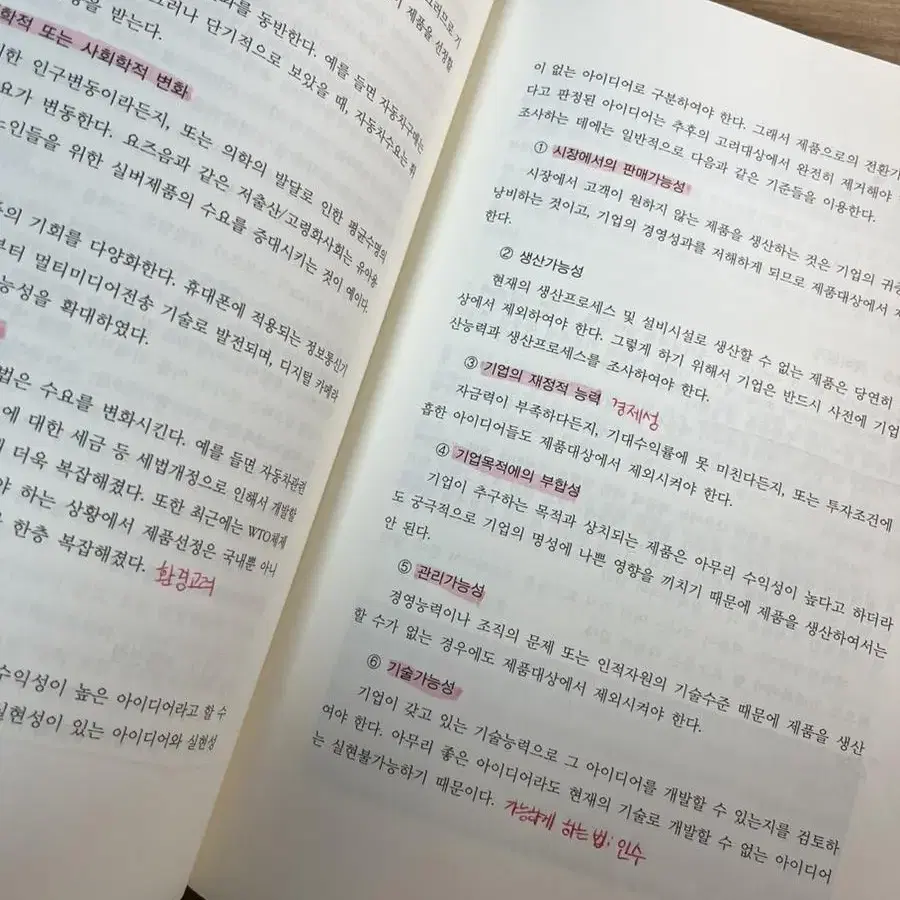 그러므로 기
화를 동반한다. 예를 들면 자동차구매는
제품을 선정할
그러나 단기적으로 보았을 때, 자동차수요는 휘
을 받는다.
학적 또는 사회학적 변화
인구변동이라든지, 또는 의학의 발달로 인한 평균수명의
요가 변동한다. 요즈음과 같은 저출산/고령화사회는 유아용
노인들을 위한 실버제품의 수요를 증대시키는 것이 예이다.
의 기회를 다양화한다. 휴대폰에 적용되는 정보통신기
부터 멀티미디어전송 기술로 발전되며, 디지털 카메라
능성을 확대하였다.
법은 수요를 변화시킨다. 예를 들면 자동차관련
에 대한 세금 등 세법개정으로 인해서 개발할
더욱 복잡해졌다. 또한 최근에는 WTO체제
야 하는 상황에서 제품선정은 국내뿐 아니
한층 복잡해졌다. 환경고려
수익성이 높은 아이디어라고 할 수
실현성이 있는 아이디어와 실현성
이 없는 아이디어로 구분하여야 한다. 그래서 제품으로의 전환가
다고 판정된 아이디어는 추후의 고려대상에서 완전히 제거해야
조사하는 데에는 일반적으로 다음과 같은 기준들을 이용한다.
① 시장에서의 판매가능성
시장에서 고객이 원하지 않는 제품을 생산하는 것은 기업의 귀중
낭비하는 것이고, 기업의 경영성과를 저해하게 되므로 제품대상에서 제
한다.
② 생산가능성
현재의 생산프로세스 및 설비시설로 생산할 수 없는 제품은 당연히
상에서 제외하여야 한다. 그렇게 하기 위해서 기업은 반드시 사전에 기업
산능력과 생산프로세스를 조사하여야 한다.
③ 기업의 재정적 능력 경제성
자금력이 부족하다든지, 기대수익률에 못 미친다든지, 또는 투자조건에
흡한 아이디어들도 제품대상에서 제외시켜야 한다.
④ 기업목적에의 부합성
기업이 추구하는 목적과 상치되는 제품은 아무리 수익성이 높다고 하더라
도 궁극적으로 기업의 명성에 나쁜 영향을 끼치기 때문에 제품을 생산하여서는
안 된다.
⑤ 관리가능성
경영능력이나 조직의 문제 또는 인적자원의 기술수준 때문에 제품을 생산
할 수가 없는 경우에도 제품대상에서 제외시켜야 한다.
⑥ 기술가능성
기업이 갖고 있는 기술능력으로 그 아이디어를 개발할 수 있는지를 검토하
여야 한다. 아무리 좋은 아이디어라도 현재의 기술로 개발할 수 없는 아이디어
는 실현불가능하기 때문이다. 가능하게 하는 법; 인수